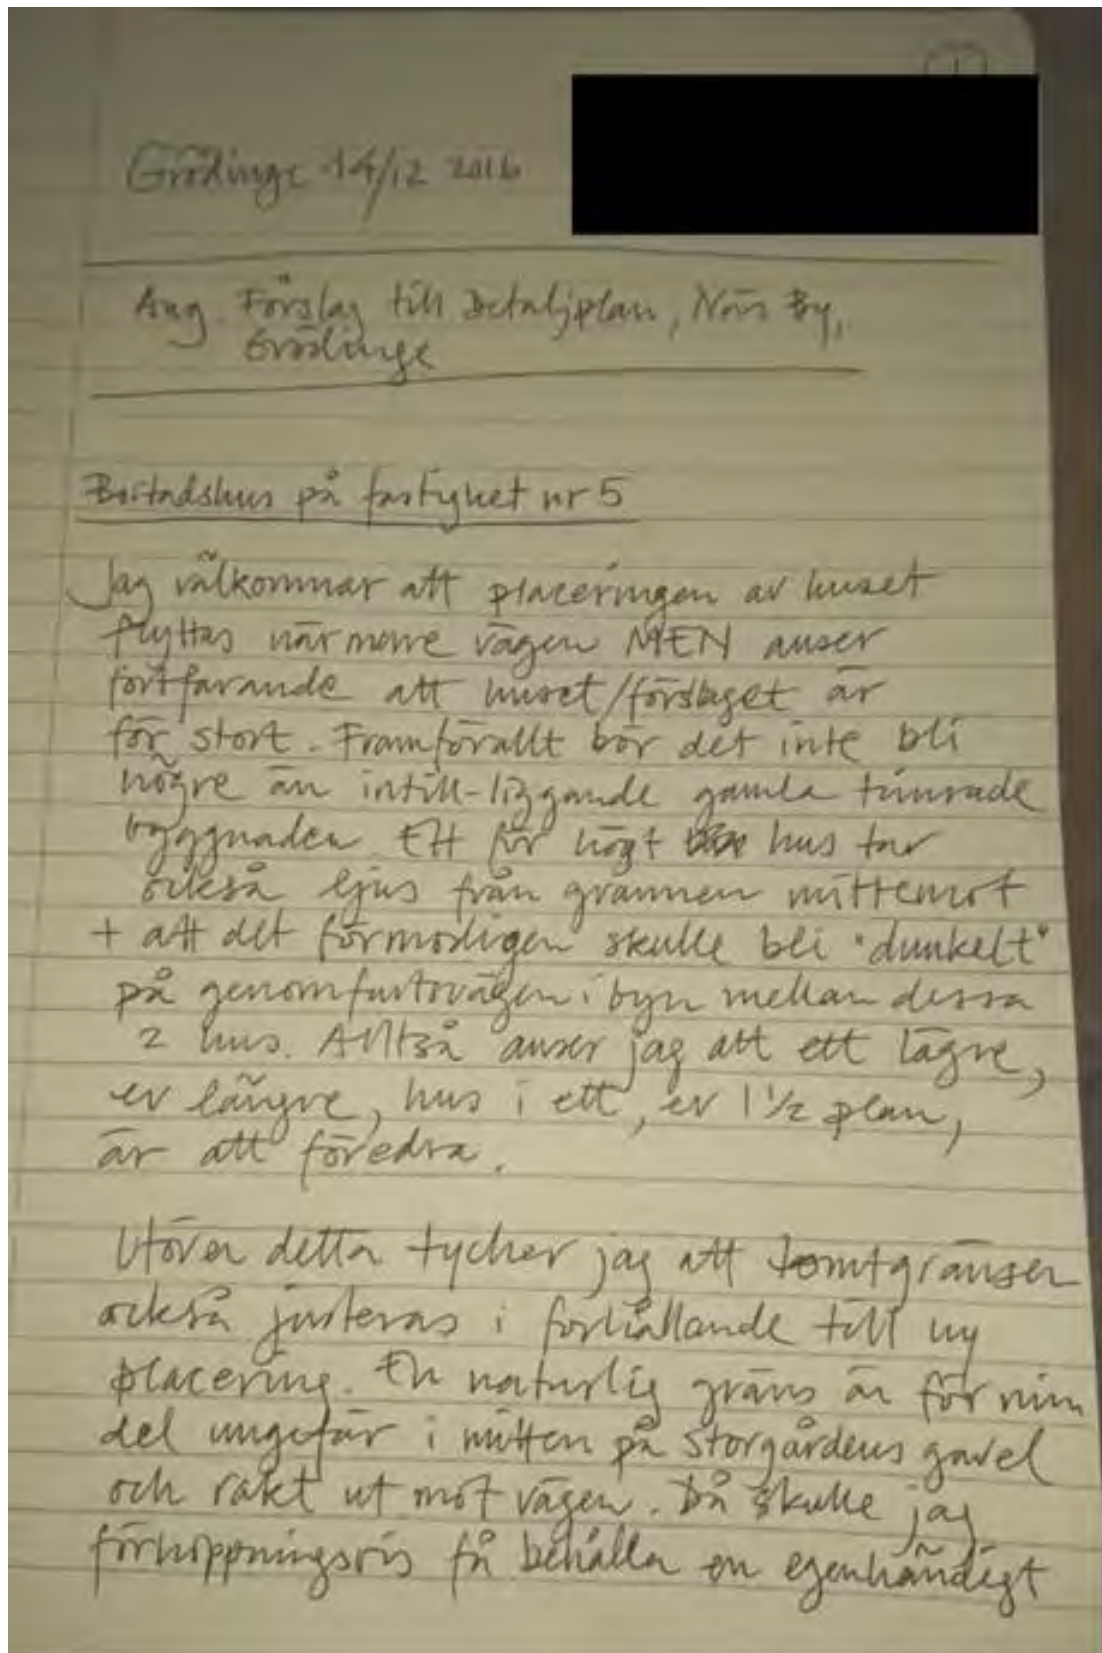 1
Grödinge 14/12 2016
Ang. Förslag till Detaljplan, Näs By,
Grödinge
Bostadshus på fastighet nr 5
Jag välkommar att placeringen av huset
flyttas närmare vägen MEN anser
fortfarande att huset/förslaget är
för stort. Framförallt bör det inte bli
högre än intill-liggande gamla timrade
byggnader. Ett för högt hus tar
också ljus från grannen mittemot
+ att det förmodligen skulle bli "dunkelt"
på genomfartsvägen i byn mellan dessa
2 hus. Alltså anser jag att ett lägre,
ev längre, hus i ett, ev 1 1/2 plan,
är att föredra.
Utöver detta tycker jag att tomtgränsen
också justeras i förhållande till ny
placering. En naturlig gräns är för min
del ungefär i mitten på Storgårdens gavel
och rakt ut mot vägen. Då skulle jag
förhoppningsvis få behålla en egenhändigt